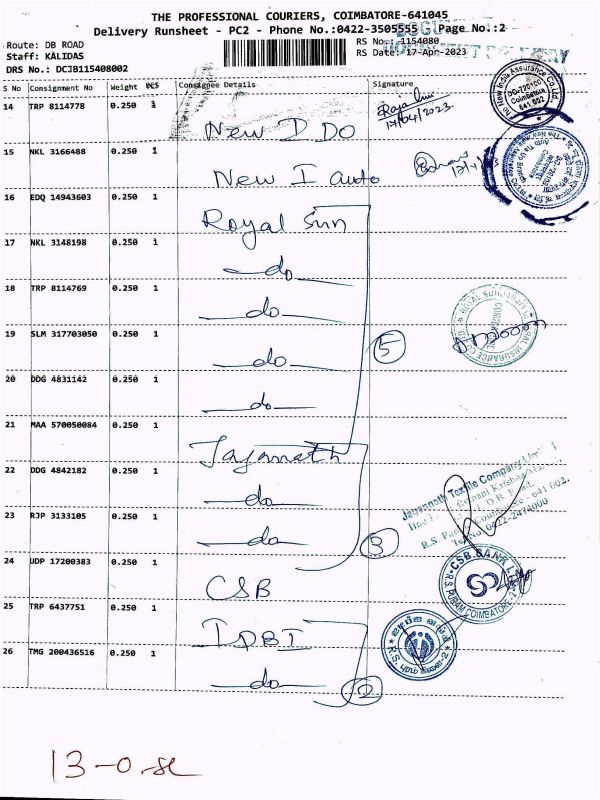 THE PROFESSIONAL COURIERS, COIMBATORE-641045
Delivery Runsheet - PC2 - Phone No.:0422-3505555 Page No.:2
Route: DB ROAD
RS No.: 1154080
Staff: KALIDAS
RS Date: 17-Apr-2023
DRS No.: DCJB115408002
S No Consignment No Weight PCS Consignee Details Signature
14 TRP 8114778 0.250 1 New I DO
17/04/2023.
15 NKL 3166488 0.250 1 New I auto
16 EDQ 14943603 0.250 1 Royal Sun
17 NKL 3148198 0.250 1 do
18 TRP 8114769 0.250 1 do
19 SLM 317703050 0.250 1 do
5
20 DDG 4831142 0.250 1 do
21 MAA 570050084 0.250 1 Jayannath
22 DDG 4842182 0.250 1 do
23 RJP 3133105 0.250 1 do
3
24 UDP 17200383 0.250 1 CSB
25 TRP 6437751 0.250 1 IDBI
26 TMG 200436516 0.250 1 do
2
New India Assurance Co. Ltd.
DO-720100
Coimbatore
641 002
Jayannath Textile Company
641 002.
0422-2474000
CSB BANK
R.S. PURAM COIMBATORE